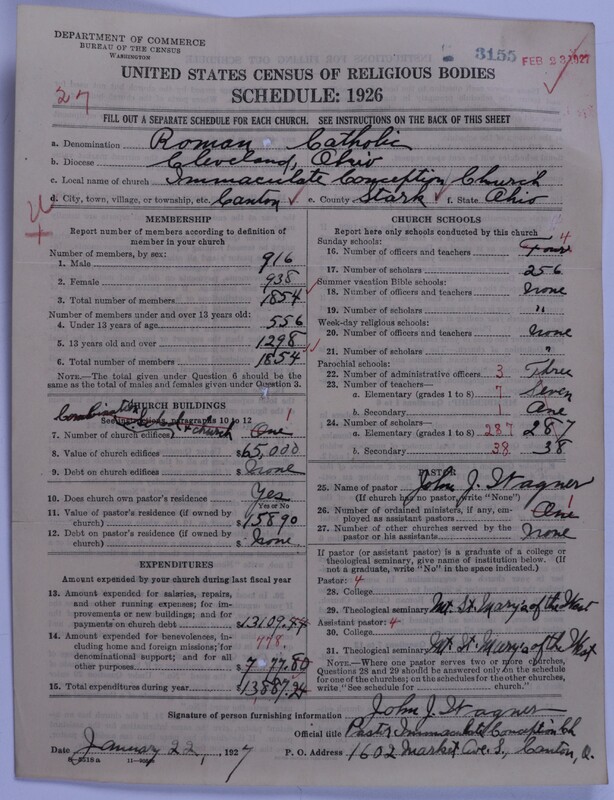 DEPARTMENT OF COMMERCE
BUREAU OF THE CENSUS
WASHINGTON
3155
FEB 23 1927
UNITED STATES CENSUS OF RELIGIOUS BODIES
27
SCHEDULE: 1926
FILL OUT A SEPARATE SCHEDULE FOR EACH CHURCH. SEE INSTRUCTIONS ON THE BACK OF THIS SHEET
a. Denomination Roman Catholic
b. Diocese Cleveland, Ohio
c. Local name of church Immaculate Conception Church
d. City, town, village, or township, etc. Canton e. County Stark f. State Ohio
MEMBERSHIP
Report number of members according to definition of
member in your church
Number of members, by sex:
1. Male 916
2. Female 938
3. Total number of members 1854
Number of members under and over 13 years old:
4. Under 13 years of age 556
5. 13 years old and over 1298
6. Total number of members 1854
NOTE.—The total given under Question 6 should be
the same as the total of males and females given under Question 3.
CHURCH BUILDINGS
Combination School & Church
See instructions, paragraphs 10 to 12
7. Number of church edifices One 1
8. Value of church edifices $65,000
9. Debt on church edifices $ None
10. Does church own pastor's residence? Yes
Yes or No
11. Value of pastor's residence (if owned by
church) $15890
12. Debt on pastor's residence (if owned by
church) $ None
EXPENDITURES
Amount expended by your church during last fiscal year
13. Amount expended for salaries, repairs,
and other running expenses; for im-
provements or new buildings; and for
payments on church debt $13109.44
14. Amount expended for benevolences,
including home and foreign missions; for
denominational support; and for all
other purposes 778. $777.80
15. Total expenditures during year $13,887.24
CHURCH SCHOOLS
Report here only schools conducted by this church
Sunday schools:
16. Number of officers and teachers Four 4
17. Number of scholars 256
Summer vacation Bible schools:
18. Number of officers and teachers None
19. Number of scholars "
Week-day religious schools:
20. Number of officers and teachers None
21. Number of scholars "
Parochial schools:
22. Number of administrative officers 3 Three
23. Number of teachers—
a. Elementary (grades 1 to 8) 7 Seven
b. Secondary 1 One
24. Number of scholars—
a. Elementary (grades 1 to 8) 287 287
b. Secondary 38 38
PASTOR
25. Name of pastor John J. Wagner
(If church has no pastor, write "None")
26. Number of ordained ministers, if any, em-
ployed as assistant pastors One 1
27. Number of other churches served by the
pastor or his assistants None
If pastor (or assistant pastor) is a graduate of a college or
theological seminary, give name of institution below. (If
not a graduate, write "No" in the space indicated.)
Pastor: 4
28. College
29. Theological seminary Mt. St. Mary's of the West
Assistant pastor: 4
30. College
31. Theological seminary Mt. St. Mary's of the West
NOTE.—Where one pastor serves two or more churches,
Questions 28 and 29 should be answered only on the schedule
for one of the churches; on the schedules for the other churches,
write "See schedule for church."
Signature of person furnishing information John J. Wagner
Official title Pastor Immaculate Conception Ch
Date January 22, 1927 P. O. Address 1602 Market Ave. S., Canton, O.